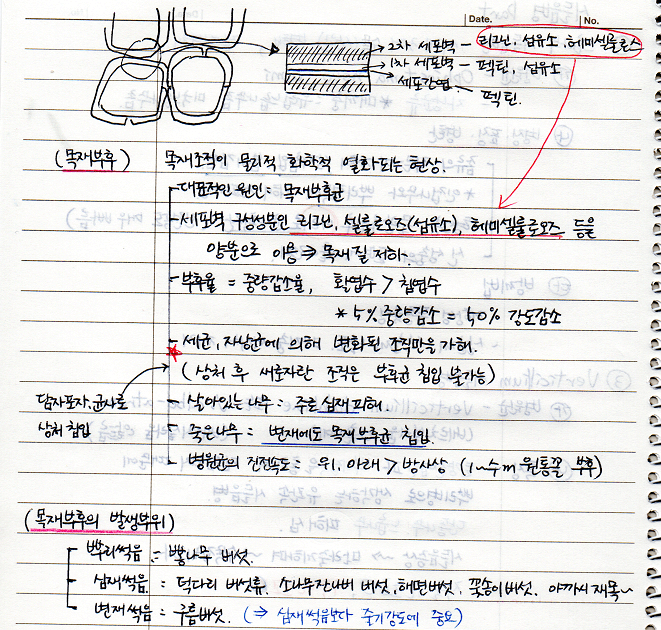 Date. No.
2차 세포벽 - 리그닌, 섬유소, 헤미셀룰로스
1차 세포벽 - 펙틴, 섬유소
세포간엽. - 펙틴.
(목재부후) 목재조직이 물리적 화학적 열화되는 현상.
- 대표적인 원인: 목재부후균
- 세포벽 구성성분인 리그닌, 셀룰로오즈(섬유소), 헤미셀룰로오즈 등을
양분으로 이용 ⇒ 목재질 저하.
- 부후율 = 중량감소율, 활엽수 > 침엽수
* 5% 중량감소 = 50% 강도감소
- 세균, 자낭균에 의해 변화된 조직만을 가해.
(상처 후 새로자란 조직은 부후균 침입 불가능)
담자포자, 균사로
상처 침입
- 살아있는 나무 : 주로 심재 피해
- 죽은나무 : 변재에도 목재부후균 침입.
- 병원균의 진전속도 : 위, 아래 > 방사상 (1~수m 원통꼴 부후)
(목재부후의 발생부위)
뿌리썩음 : 뽕나무 버섯.
심재썩음 : 덕다리 버섯류. 소나무잔나비 버섯, 해면버섯, 꽃송이버섯. 아까시재목~
변재썩음 : 구름버섯. (⇒ 심재썩음보다 줄기강도에 중요)